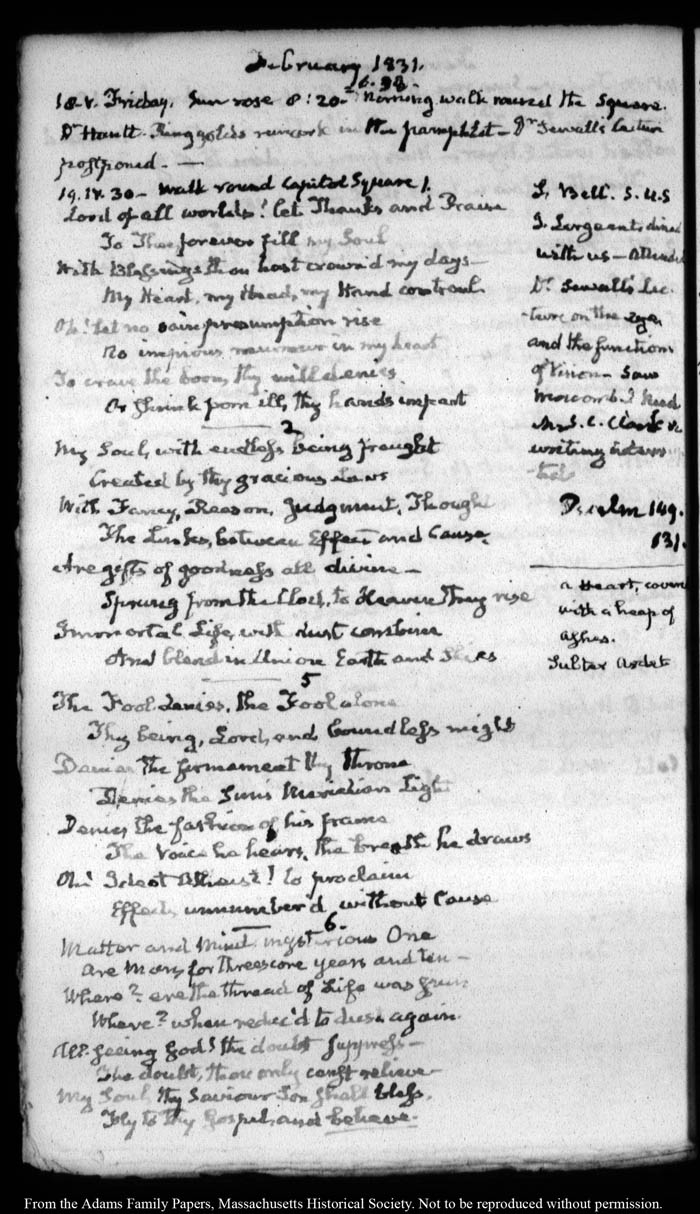 February 1831.
18. V. Friday. Sun rose 8:20 Morning walk round the Square.
Dr Huntt. Ringgold's in pamphlet - Dr Sewall's Lecture
postponed. —
19. IV. 30 - Walk round Capitol Square 1.
Lord of all worlds! let Thanks and Praise
To Thee forever fill my Soul
With Blessings thou hast crown'd my days—
My Heart, my Head, my Hand controul.
Oh! let no vain presumption rise
No impious murmur in my heart
To crave the boon, thy will denies
Or Shrink from ill, thy hands impart
2
My Soul, with endless being fraught
Created by thy gracious Laws
With Fancy, Reason, Judgment, Thought
The Links, between Effect and Cause,
Are gifts of goodness all divine—
Sprung from the Clod, to Heaven they rise
Immortal Life, with dust combine
And blend in Union Earth and Skies
5
The Fool denies, the Fool alone
Thy being, Lord, and boundless might
Denies the firmament thy throne
Denies the Sun's Meridian Light
Denies the fashion of his frame
The Voice he hears, the breath he draws
Oh! Ideot Atheist! to proclaim
Effects unnumber'd without Cause
6.
Matter and Mind, mysterious One
Are Man, for threescore years and ten—
Where? ere the thread of Life was spun
Where? when reduc'd to dust again.
All-seeing God! the doubt suppress—
The doubt, thou only canst relieve—
My Soul, thy Saviour Son shall bless,
Fly to thy Gospel, and believe.
J. Bell. S. U.S
J. Sergeant dined
with us — Attended
Dr. Sewall's Lec-
-ture on the eye
and the function
of Vision — Saw
Read
Mr S. C. Clark
writing
Psalm 149.
131.
a Heart, cover
with a heap of
ashes.
Sulter Ardet
From the Adams Family Papers, Massachusetts Historical Society. Not to be reproduced without permission.